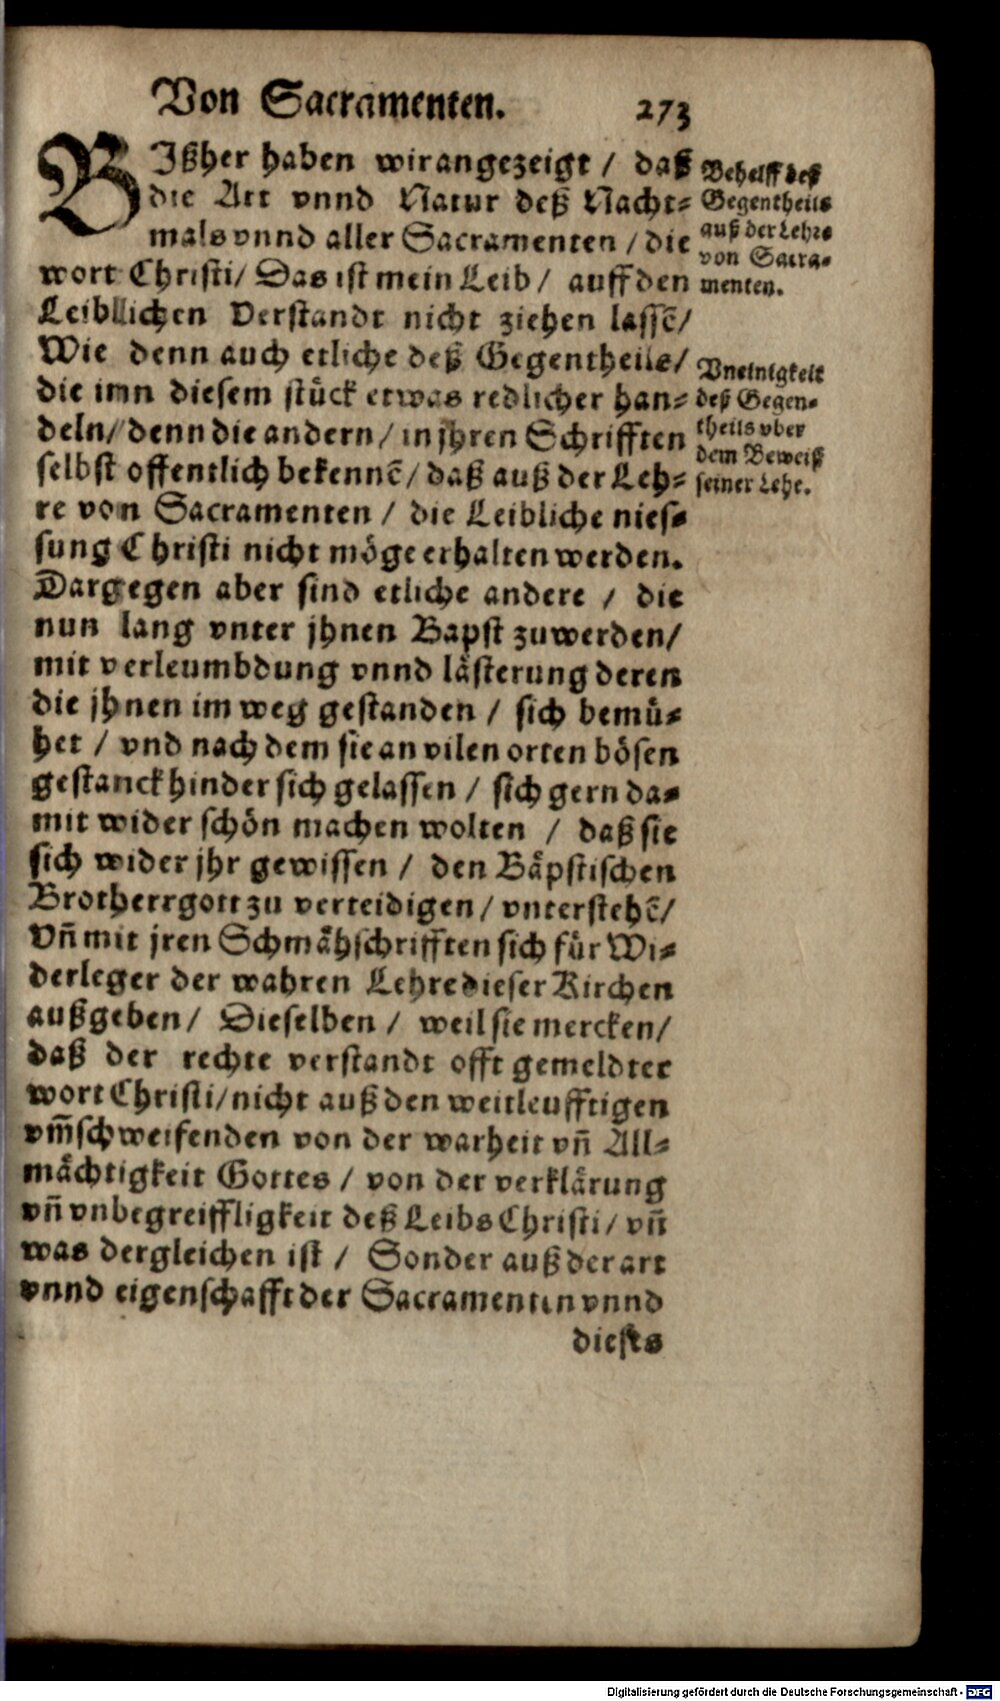 Von Sacramenten. 273
BIßher haben wir angezeigt / daß
die Art vnnd Natur deß Nacht⸗
mals vnnd aller Sacramenten / die
wort Christi / Das ist mein Leib / auff den
Leiblichen Verstandt nicht ziehen lassē /
Wie denn auch etliche deß Gegentheils /
die inn diesem stück etwas redlicher han⸗
deln / denn die andern / in jhren Schrifften
selbst offentlich bekennē / daß auß der Leh⸗
re von Sacramenten / die Leibliche nies⸗
sung Christi nicht möge erhalten werden.
Dargegen aber sind etliche andere / die
nun lang vnter jhnen Bapst zuwerden /
mit verleumbdung vnnd lästerung deren
die jhnen im weg gestanden / sich bemü⸗
het / vnd nach dem sie an vilen orten bösen
gestanck hinder sich gelassen / sich gern da⸗
mit wider schön machen wolten / daß sie
sich wider jhr gewissen / den Bäpstischen
Brotherrgott zu verteidigen / vnterstehē /
Vn̄ mit jren Schmähschrifften sich für Wi⸗
derleger der wahren Lehre dieser Kirchen
außgeben / Dieselben / weil sie mercken /
daß der rechte verstandt offt gemeldter
wort Christi / nicht auß den weitleufftigen
vm̄schweifenden von der warheit vn̄ All⸗
mächtigkeit Gottes / von der verklärung
vn̄ vnbegreiffligkeit deß Leibs Christi / vn̄
was dergleichen ist / Sonder auß der art
vnnd eigenschafft der Sacramenten vnnd
dieses
Behelff deß
Gegentheils
auß der Lehre
von Sacra⸗
menten.
Vneinigkeit
deß Gegen⸗
theils vber
dem Beweiß
seiner Lehr.
Digitalisierung gefördert durch die Deutsche Forschungsgemeinschaft - DFG